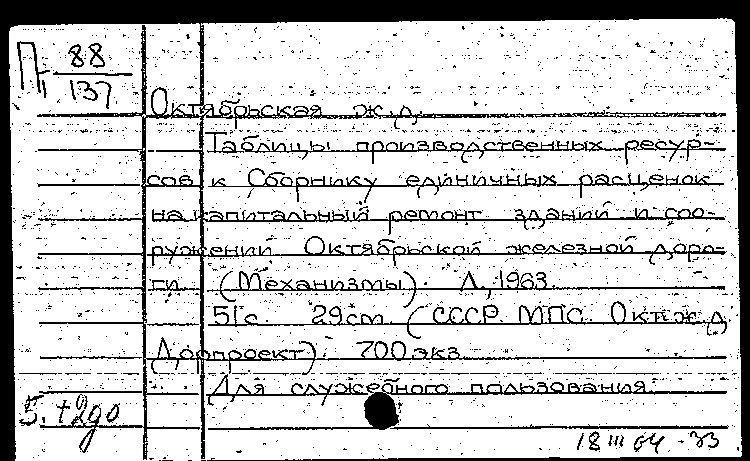 П 88
137
Октябрьская ж.д.
Таблицы производственных ресур-
сов к Сборнику единичных расценок
на капитальный ремонт зданий и соо-
ружений Октябрьской железной доро-
ги (Механизмы). Л., 1963.
51с 29см (СССР. МПС. Окт.ж.д.
Дорпроект). 700 экз.
Для служебного пользования.
18 III 64